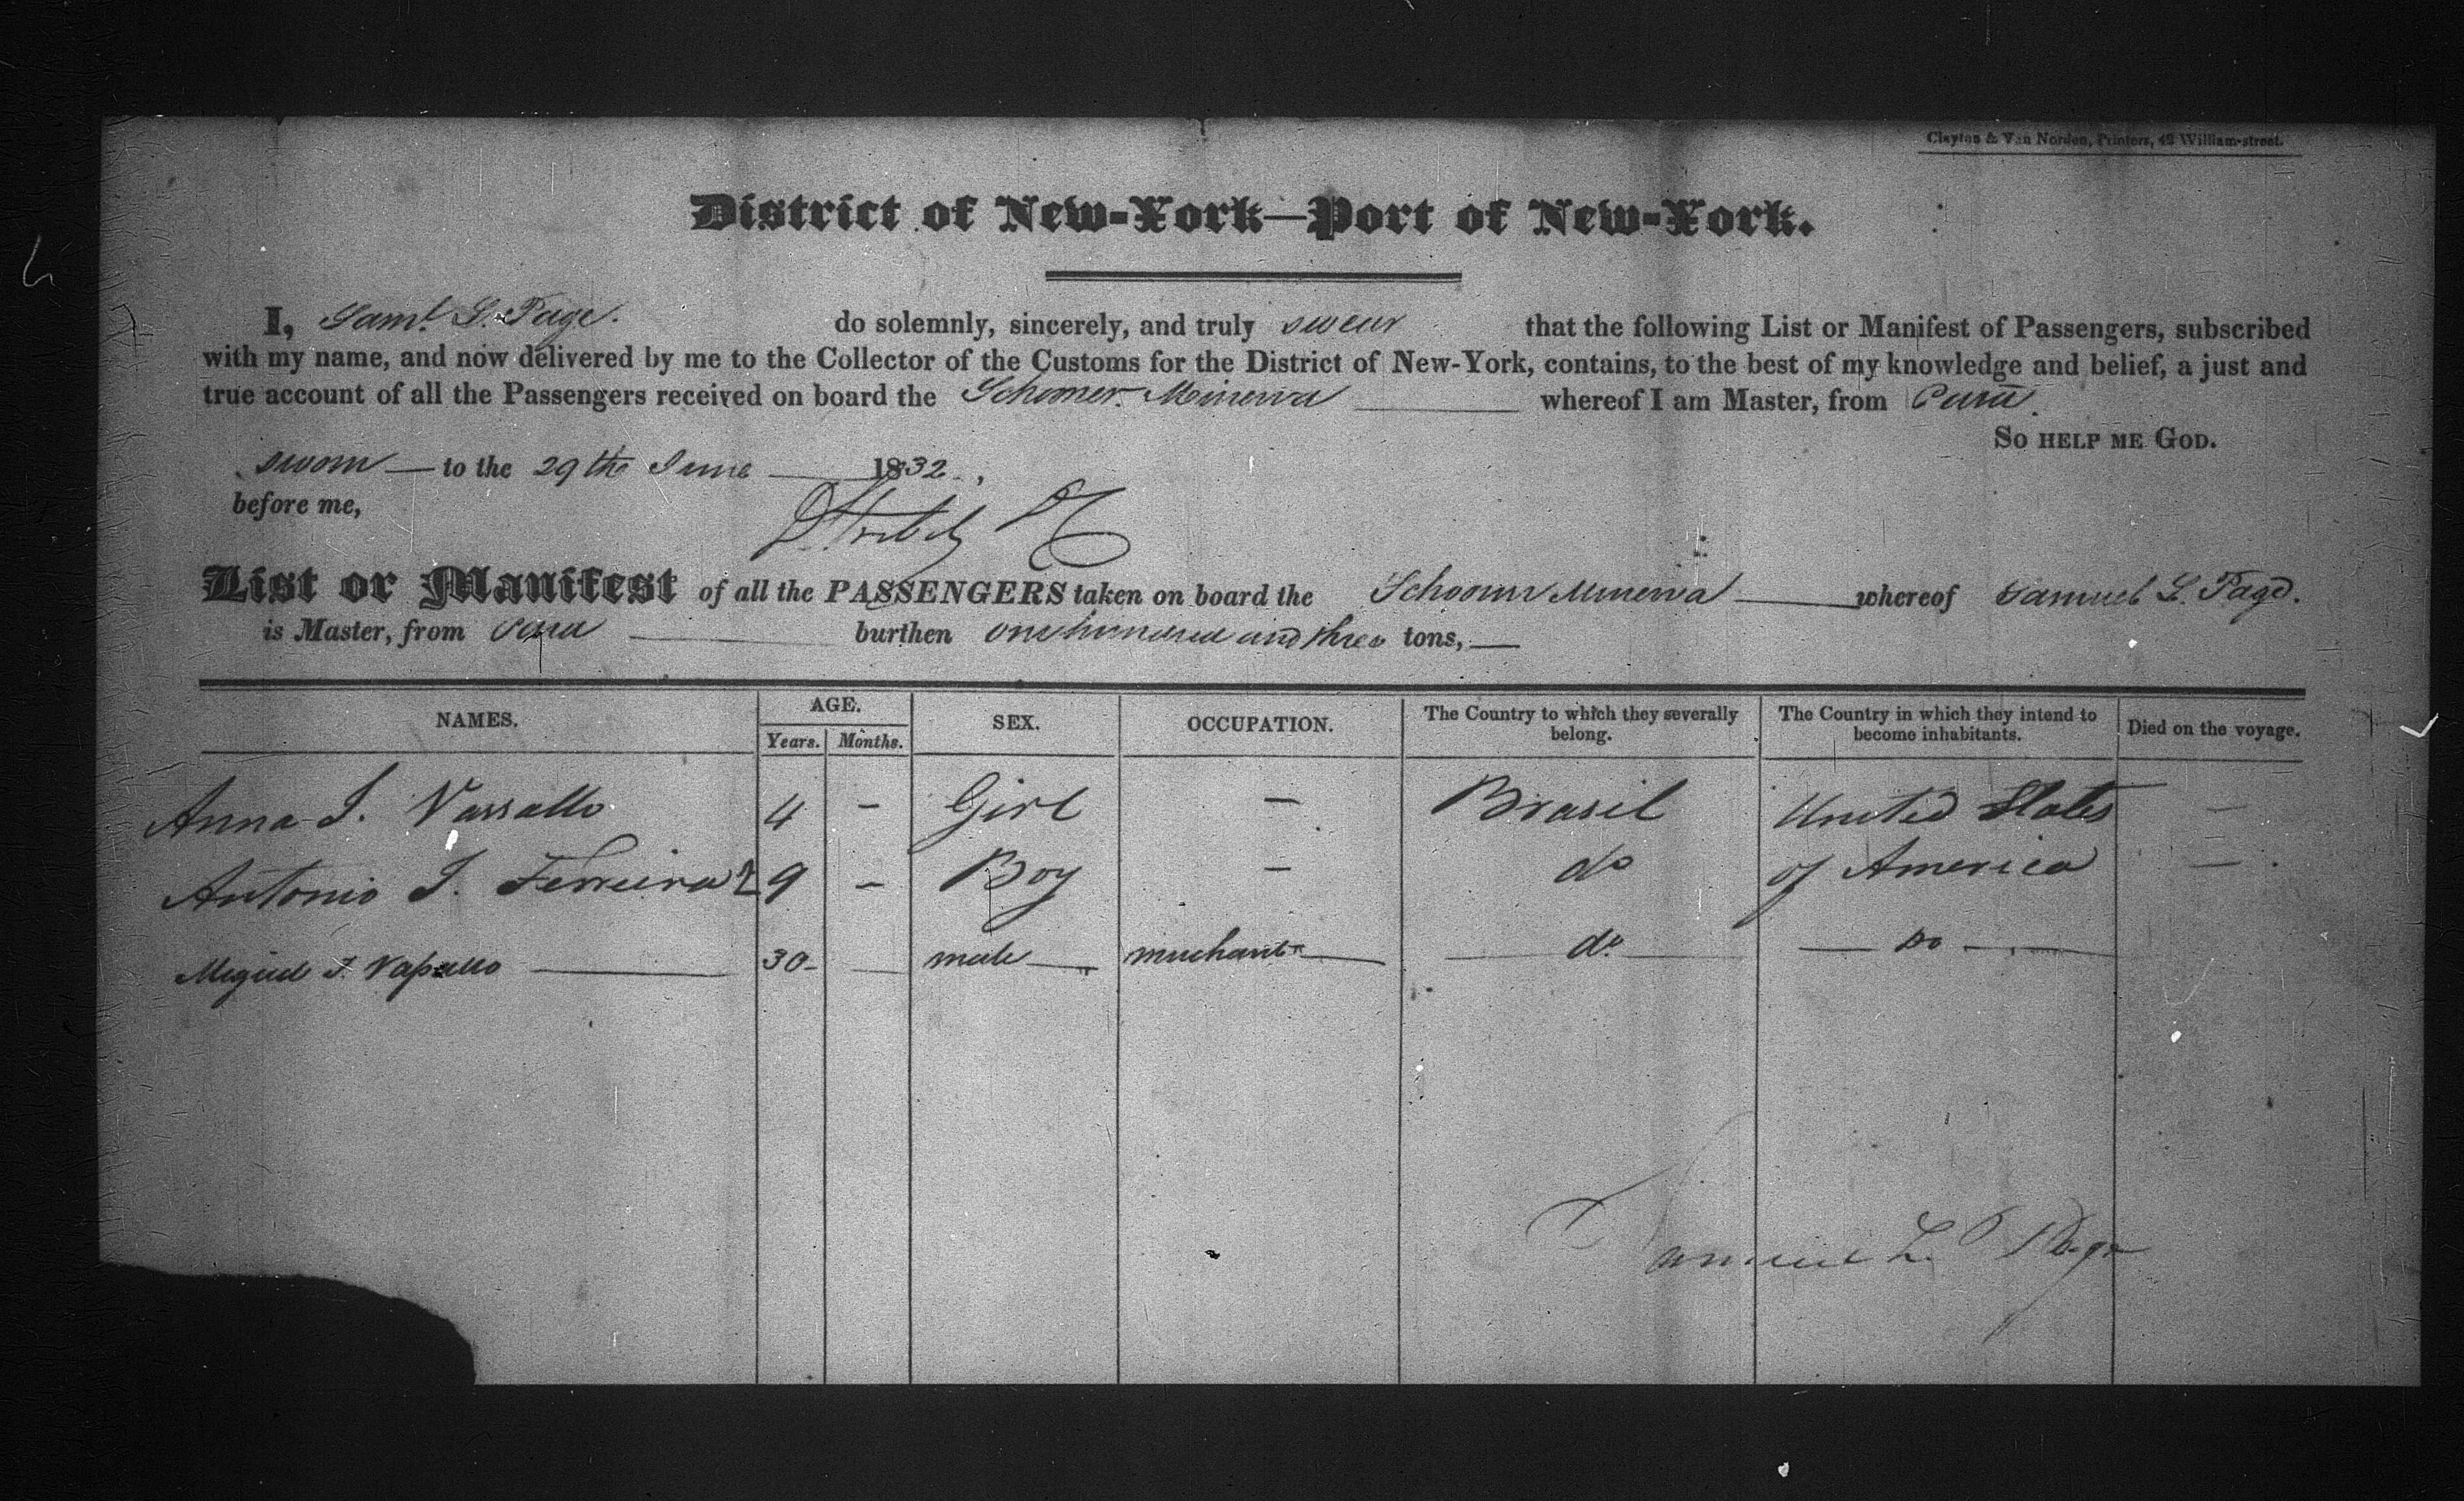 Clayton & Van Norden, Printers, 42 William-street.
District of New-York—Port of New-York.
I, Saml. L. Page. do solemnly, sincerely, and truly swear that the following List or Manifest of Passengers, subscribed
with my name, and now delivered by me to the Collector of the Customs for the District of New-York, contains, to the best of my knowledge and belief, a just and
true account of all the Passengers received on board the Schooner Minerva whereof I am Master, from Para.
So help me God.
sworn — to the 29th June 1832.
before me,
List or Manifest of all the PASSENGERS taken on board the Schooner Minerva — whereof Samuel L. Page.
is Master, from Para — burthen one hundred and three tons, —
NAMES. AGE. SEX. OCCUPATION. The Country to which they severally belong. The Country in which they intend to become inhabitants. Died on the voyage.
Years. Months.
Anna J. Vassallo 4 – Girl – Brasil United States –
Antonio J. Ferreira 9 – Boy – do of America –
Miguel J. Vassallo — 30 — male — merchant — do. — Do —
Samuel L. Page